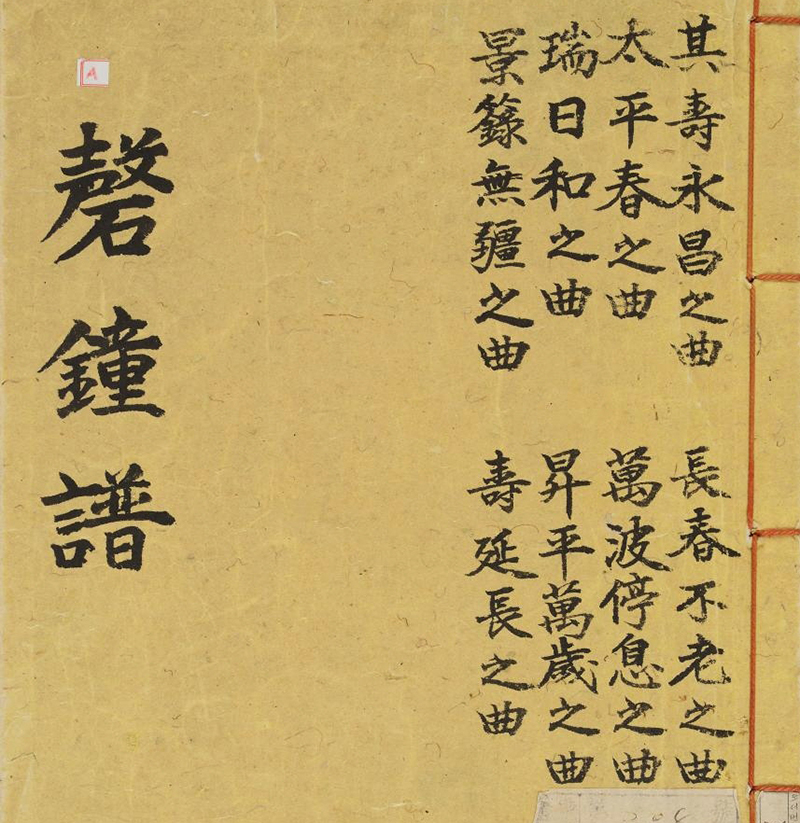 其壽永昌之曲
太平春之曲
瑞日和之曲
景籙無疆之曲
長春不老之曲
萬波停息之曲
昇平萬歲之曲
壽延長之曲
磬鐘譜
A